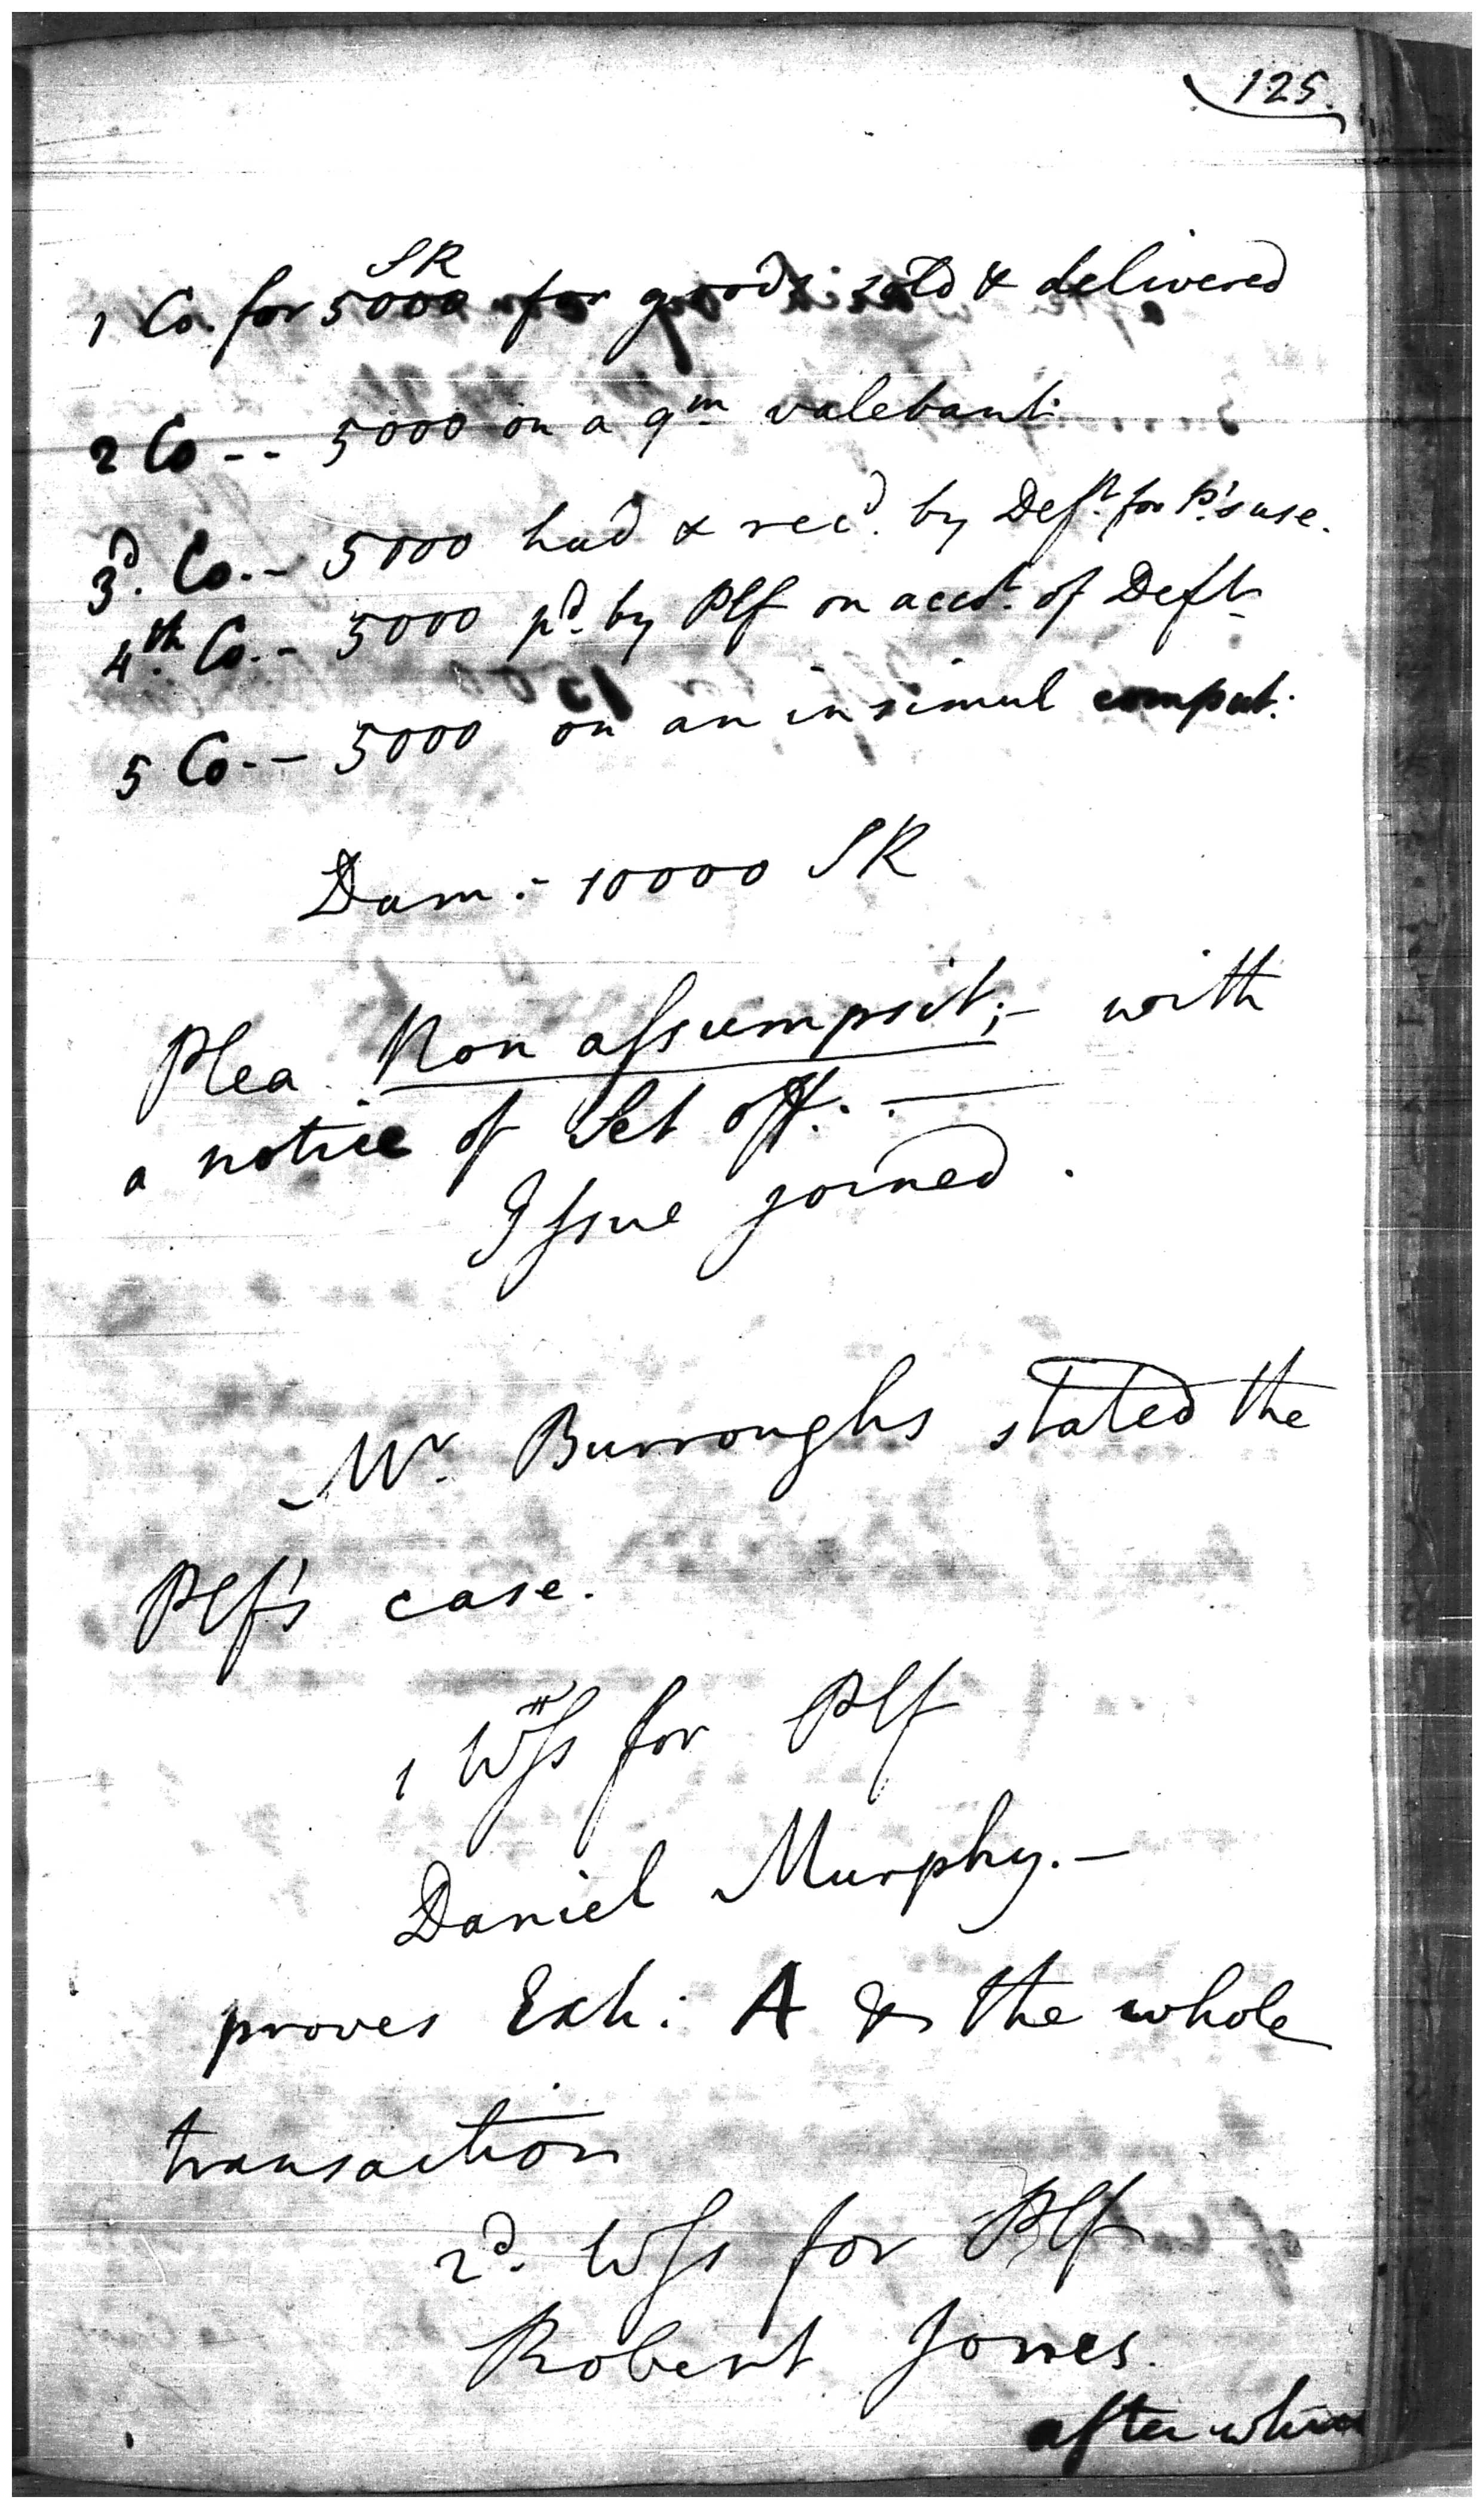 125.
SR
1 Co. for 5000 for goods sold & delivered
2 Co - - 5000 on a qm valebant
3d. Co. - 5000 had & recd. by Deft. for P's use.
4th. Co. - 5000 pd. by Plf on acct. of Deft
5 Co. - - 5000 on an insimul comput:
Dam: - 10000 SR
Plea Non assumpsit; - with
a notice of Set off. . —
Issue joined.
Mr. Burroughs stated the
Plf's case.
1 Wss for Plf
Daniel Murphy. —
proves Exh: A & the whole
transaction
2d. Wss for Plf
Robert Jones.
after which